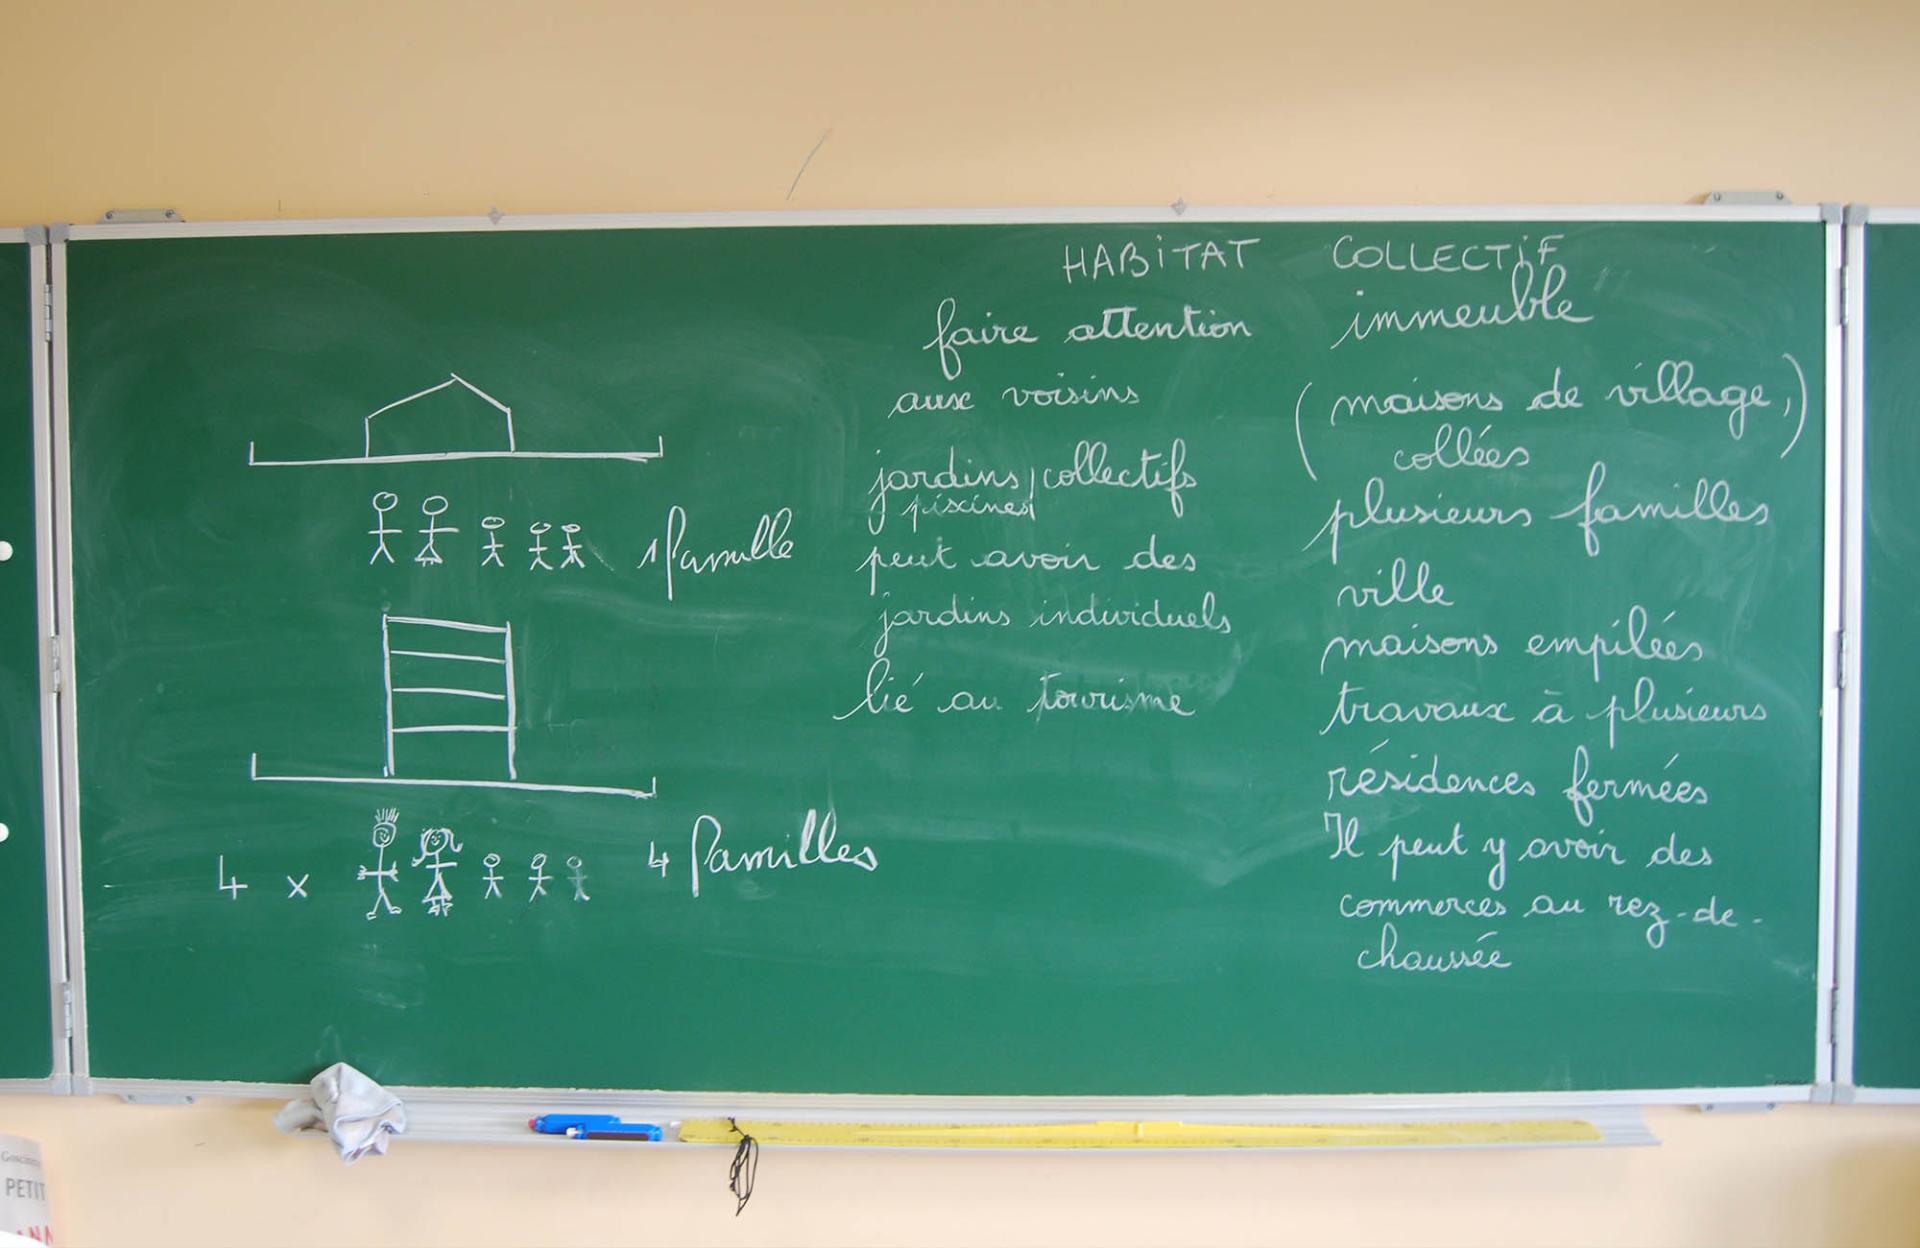 HABITAT COLLECTIF
1 famille
4 x
4 familles
faire attention
aux voisins
jardins collectifs
piscines
peut avoir des
jardins individuels
lié au tourisme
immeuble
(maisons de village,)
collées
plusieurs familles
ville
maisons empilées
travaux à plusieurs
résidences fermées
Il peut y avoir des
commerces au rez-de-
chaussée
PETIT